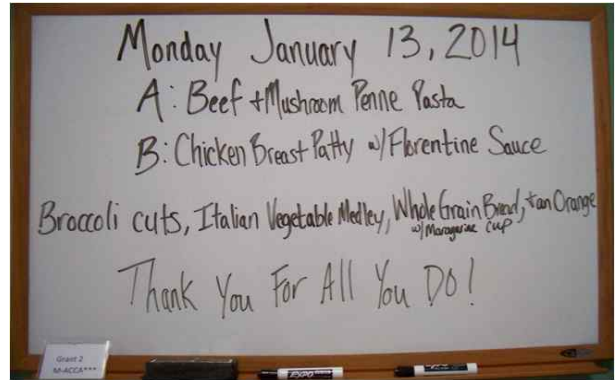 Monday January 13, 2014
A: Beef + Mushroom Penne Pasta
B: Chicken Breast Patty w/ Florentine Sauce
Broccoli cuts, Italian Vegetable Medley, Whole Grain Bread, + an Orange
w/ Maragarine cup
Thank You For All You Do!
Grant 2
M-ACCA***
EXPO